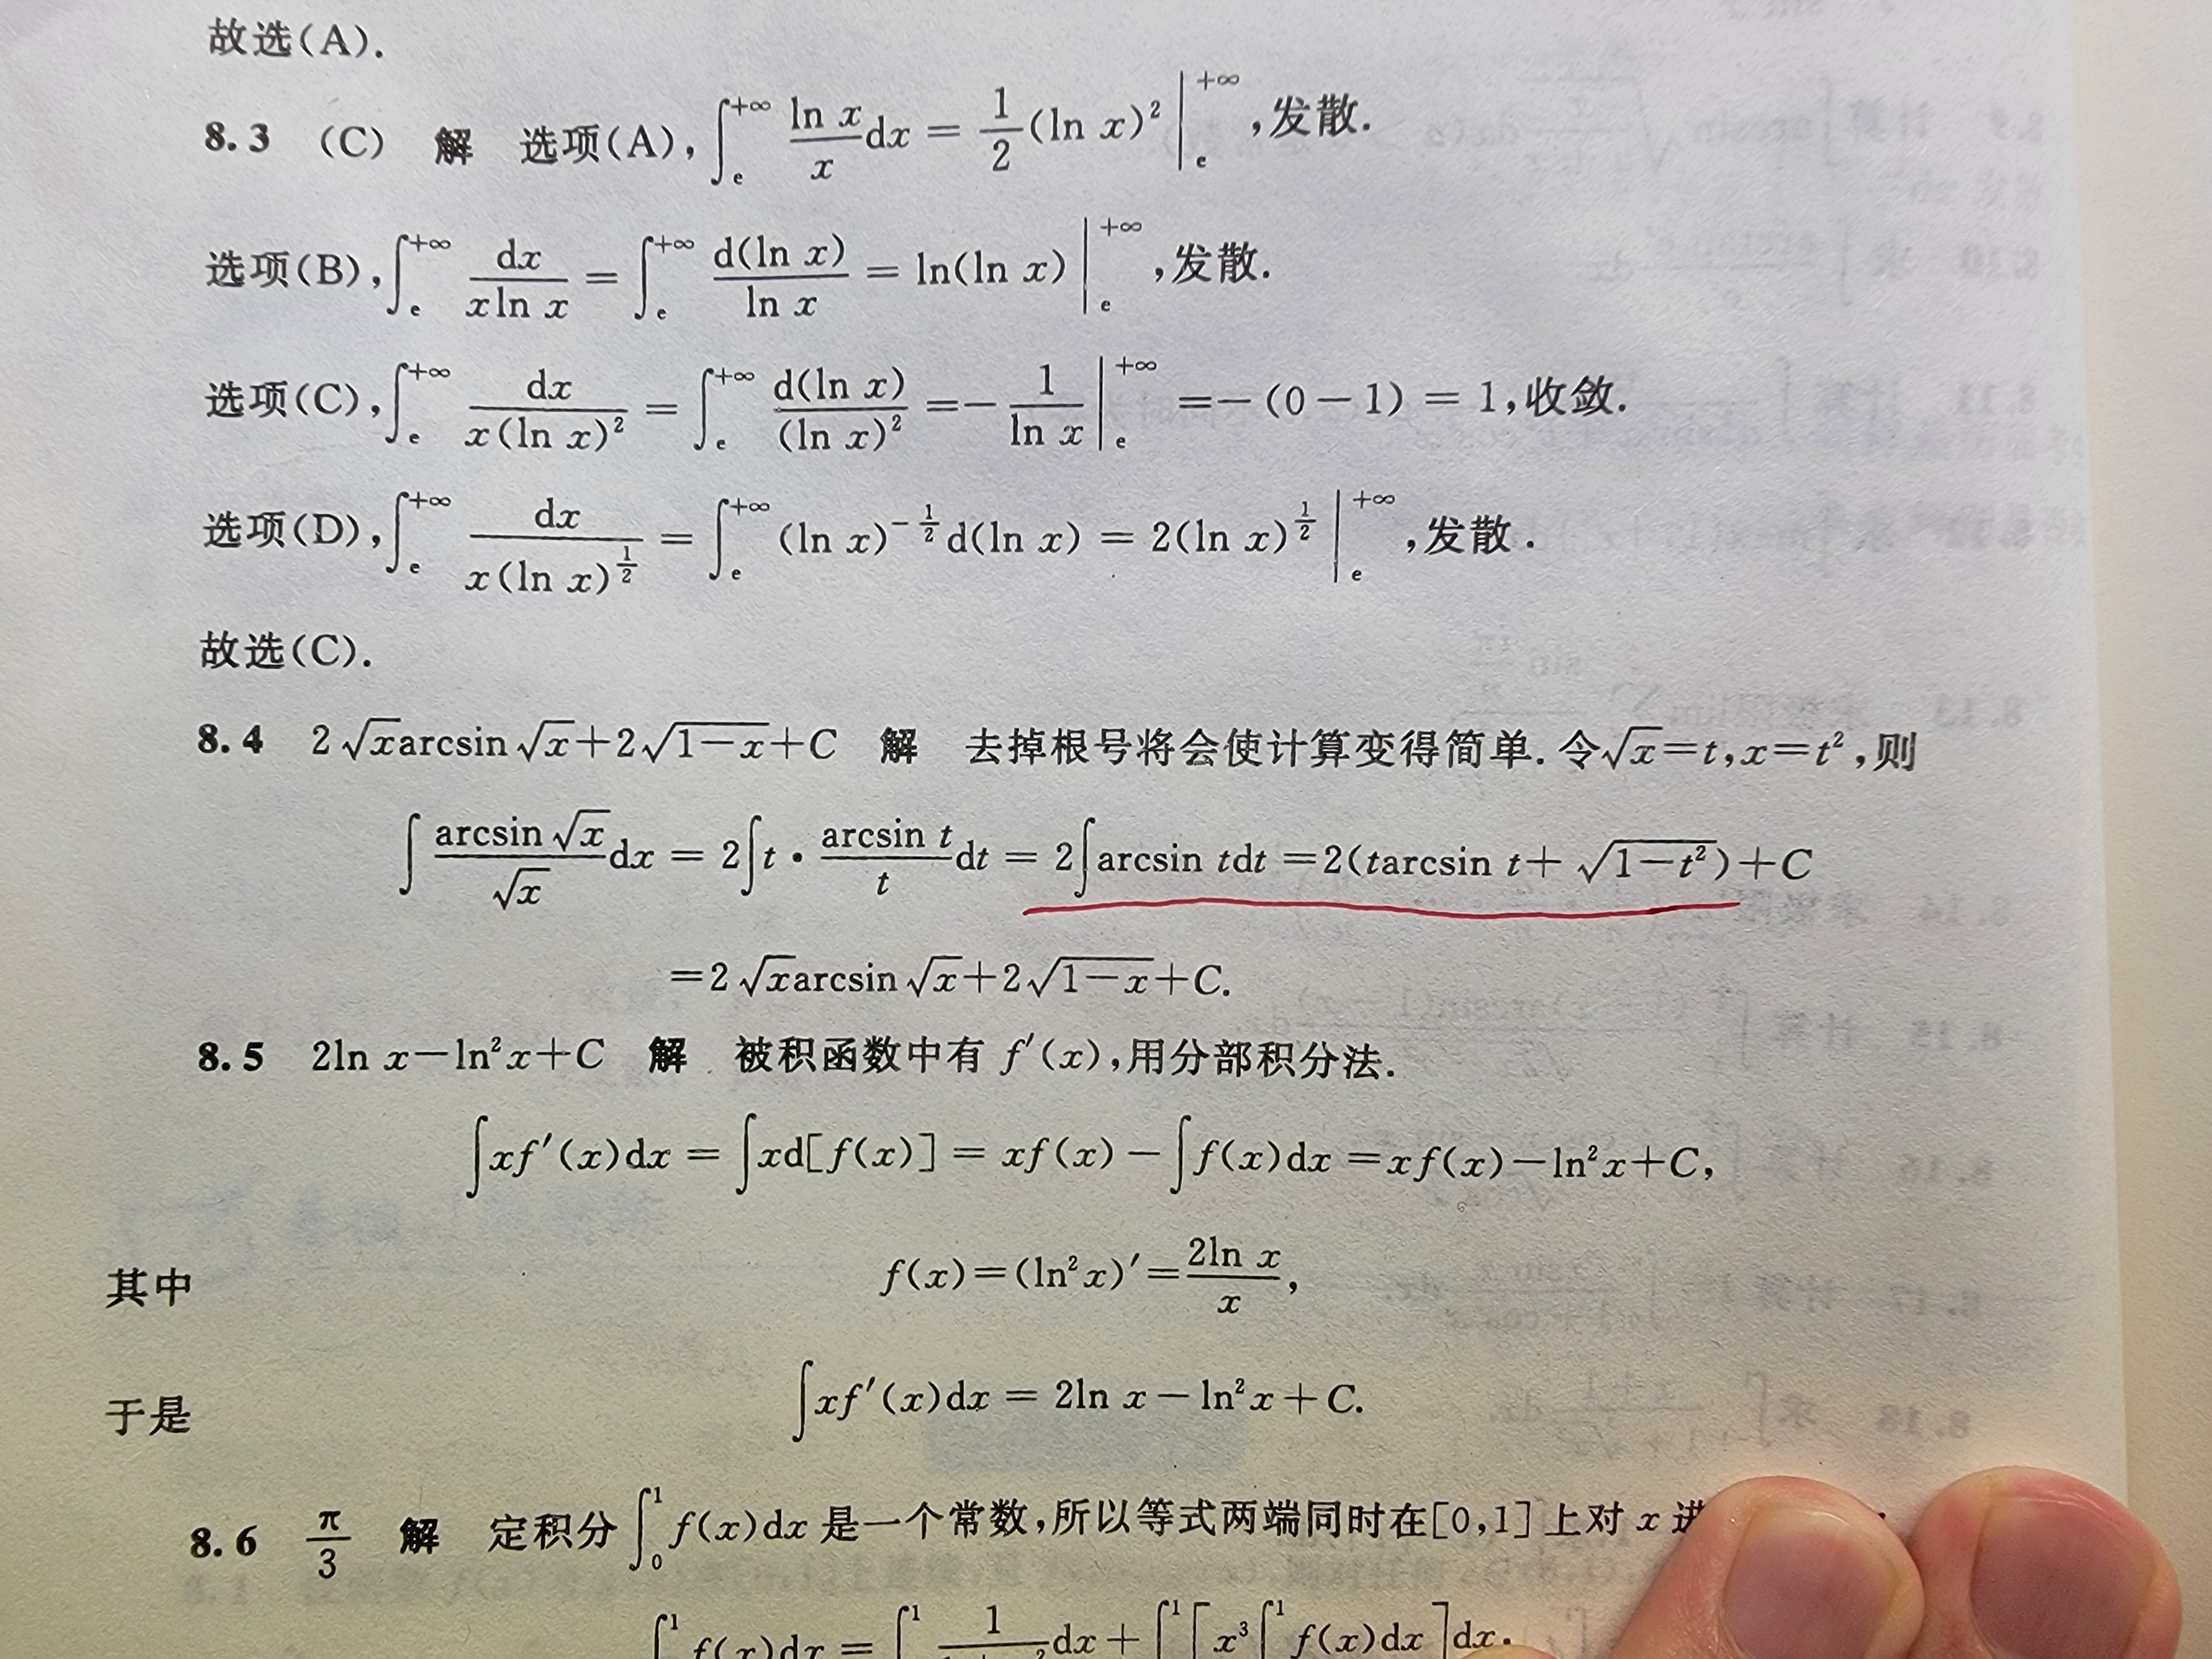 故选(A).
8.3 (C) 解 选项(A),∫_e^{+∞} \frac{ln x}{x}dx = \frac{1}{2}(ln x)²|_e^{+∞},发散.
选项(B),∫_e^{+∞} \frac{dx}{x ln x} = ∫_e^{+∞} \frac{d(ln x)}{ln x} = ln(ln x)|_e^{+∞},发散.
选项(C),∫_e^{+∞} \frac{dx}{x(ln x)²} = ∫_e^{+∞} \frac{d(ln x)}{(ln x)²} =-\frac{1}{ln x}|_e^{+∞} =-(0-1) = 1,收敛.
选项(D),∫_e^{+∞} \frac{dx}{x(ln x)^{\frac{1}{2}}} = ∫_e^{+∞} (ln x)^{-\frac{1}{2}}d(ln x) = 2(ln x)^{\frac{1}{2}}|_e^{+∞},发散.
故选(C).
8.4 2√x arcsin √x+2√(1-x)+C 解 去掉根号将会使计算变得简单.令√x=t,x=t²,则
∫\frac{arcsin √x}{√x}dx = 2∫t·\frac{arcsin t}{t}dt = 2∫arcsin tdt =2(tarcsin t+√(1-t²))+C
=2√x arcsin √x+2√(1-x)+C.
8.5 2ln x-ln²x+C 解 被积函数中有 f′(x),用分部积分法.
∫xf′(x)dx = ∫xd[f(x)] = xf(x)-∫f(x)dx =xf(x)-ln²x+C,
其中 f(x)=(ln²x)′=\frac{2ln x}{x},
于是 ∫xf′(x)dx = 2ln x-ln²x+C.
8.6 \frac{π}{3} 解 定积分∫_0^1 f(x)dx 是一个常数,所以等式两端同时在[0,1]上对 x 进
∫^1 f(x)dx = ∫^1 \frac{1}{}dx+∫^1[x³∫^1 f(x)dx]dx.